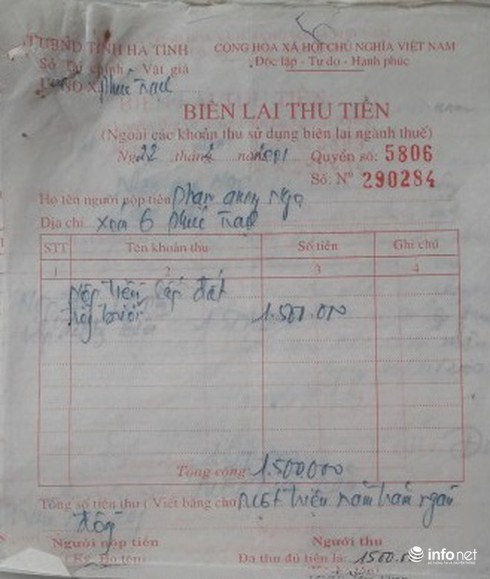 UBND TỈNH HÀ TĨNH CỘNG HÒA XÃ HỘI CHỦ NGHĨA VIỆT NAM
Sở Tài chính - Vật giá Độc lập - Tự do - Hạnh phúc
UBND X. Phúc Trạch
BIÊN LAI THU TIỀN
(Ngoài các khoản thu sử dụng biên lai ngành thuế)
Ngày 22 tháng năm 2001 Quyển số: 5806
Số: Nº 290284
Họ tên người nộp tiền Phan
Địa chỉ xóm 6 Phúc Trạch
STT Tên khoản thu Số tiền Ghi chú
1 2 3 4
Nộp tiền cấp đất
trồng bưởi 1.500.000
Tổng cộng: 1.500.000
Tổng số tiền thu (Viết bằng chữ) Một triệu năm trăm ngàn
đồng
Người nộp tiền Người thu
(Ký, Họ tên) Đã thu đủ tiền là: 1500.
infonet